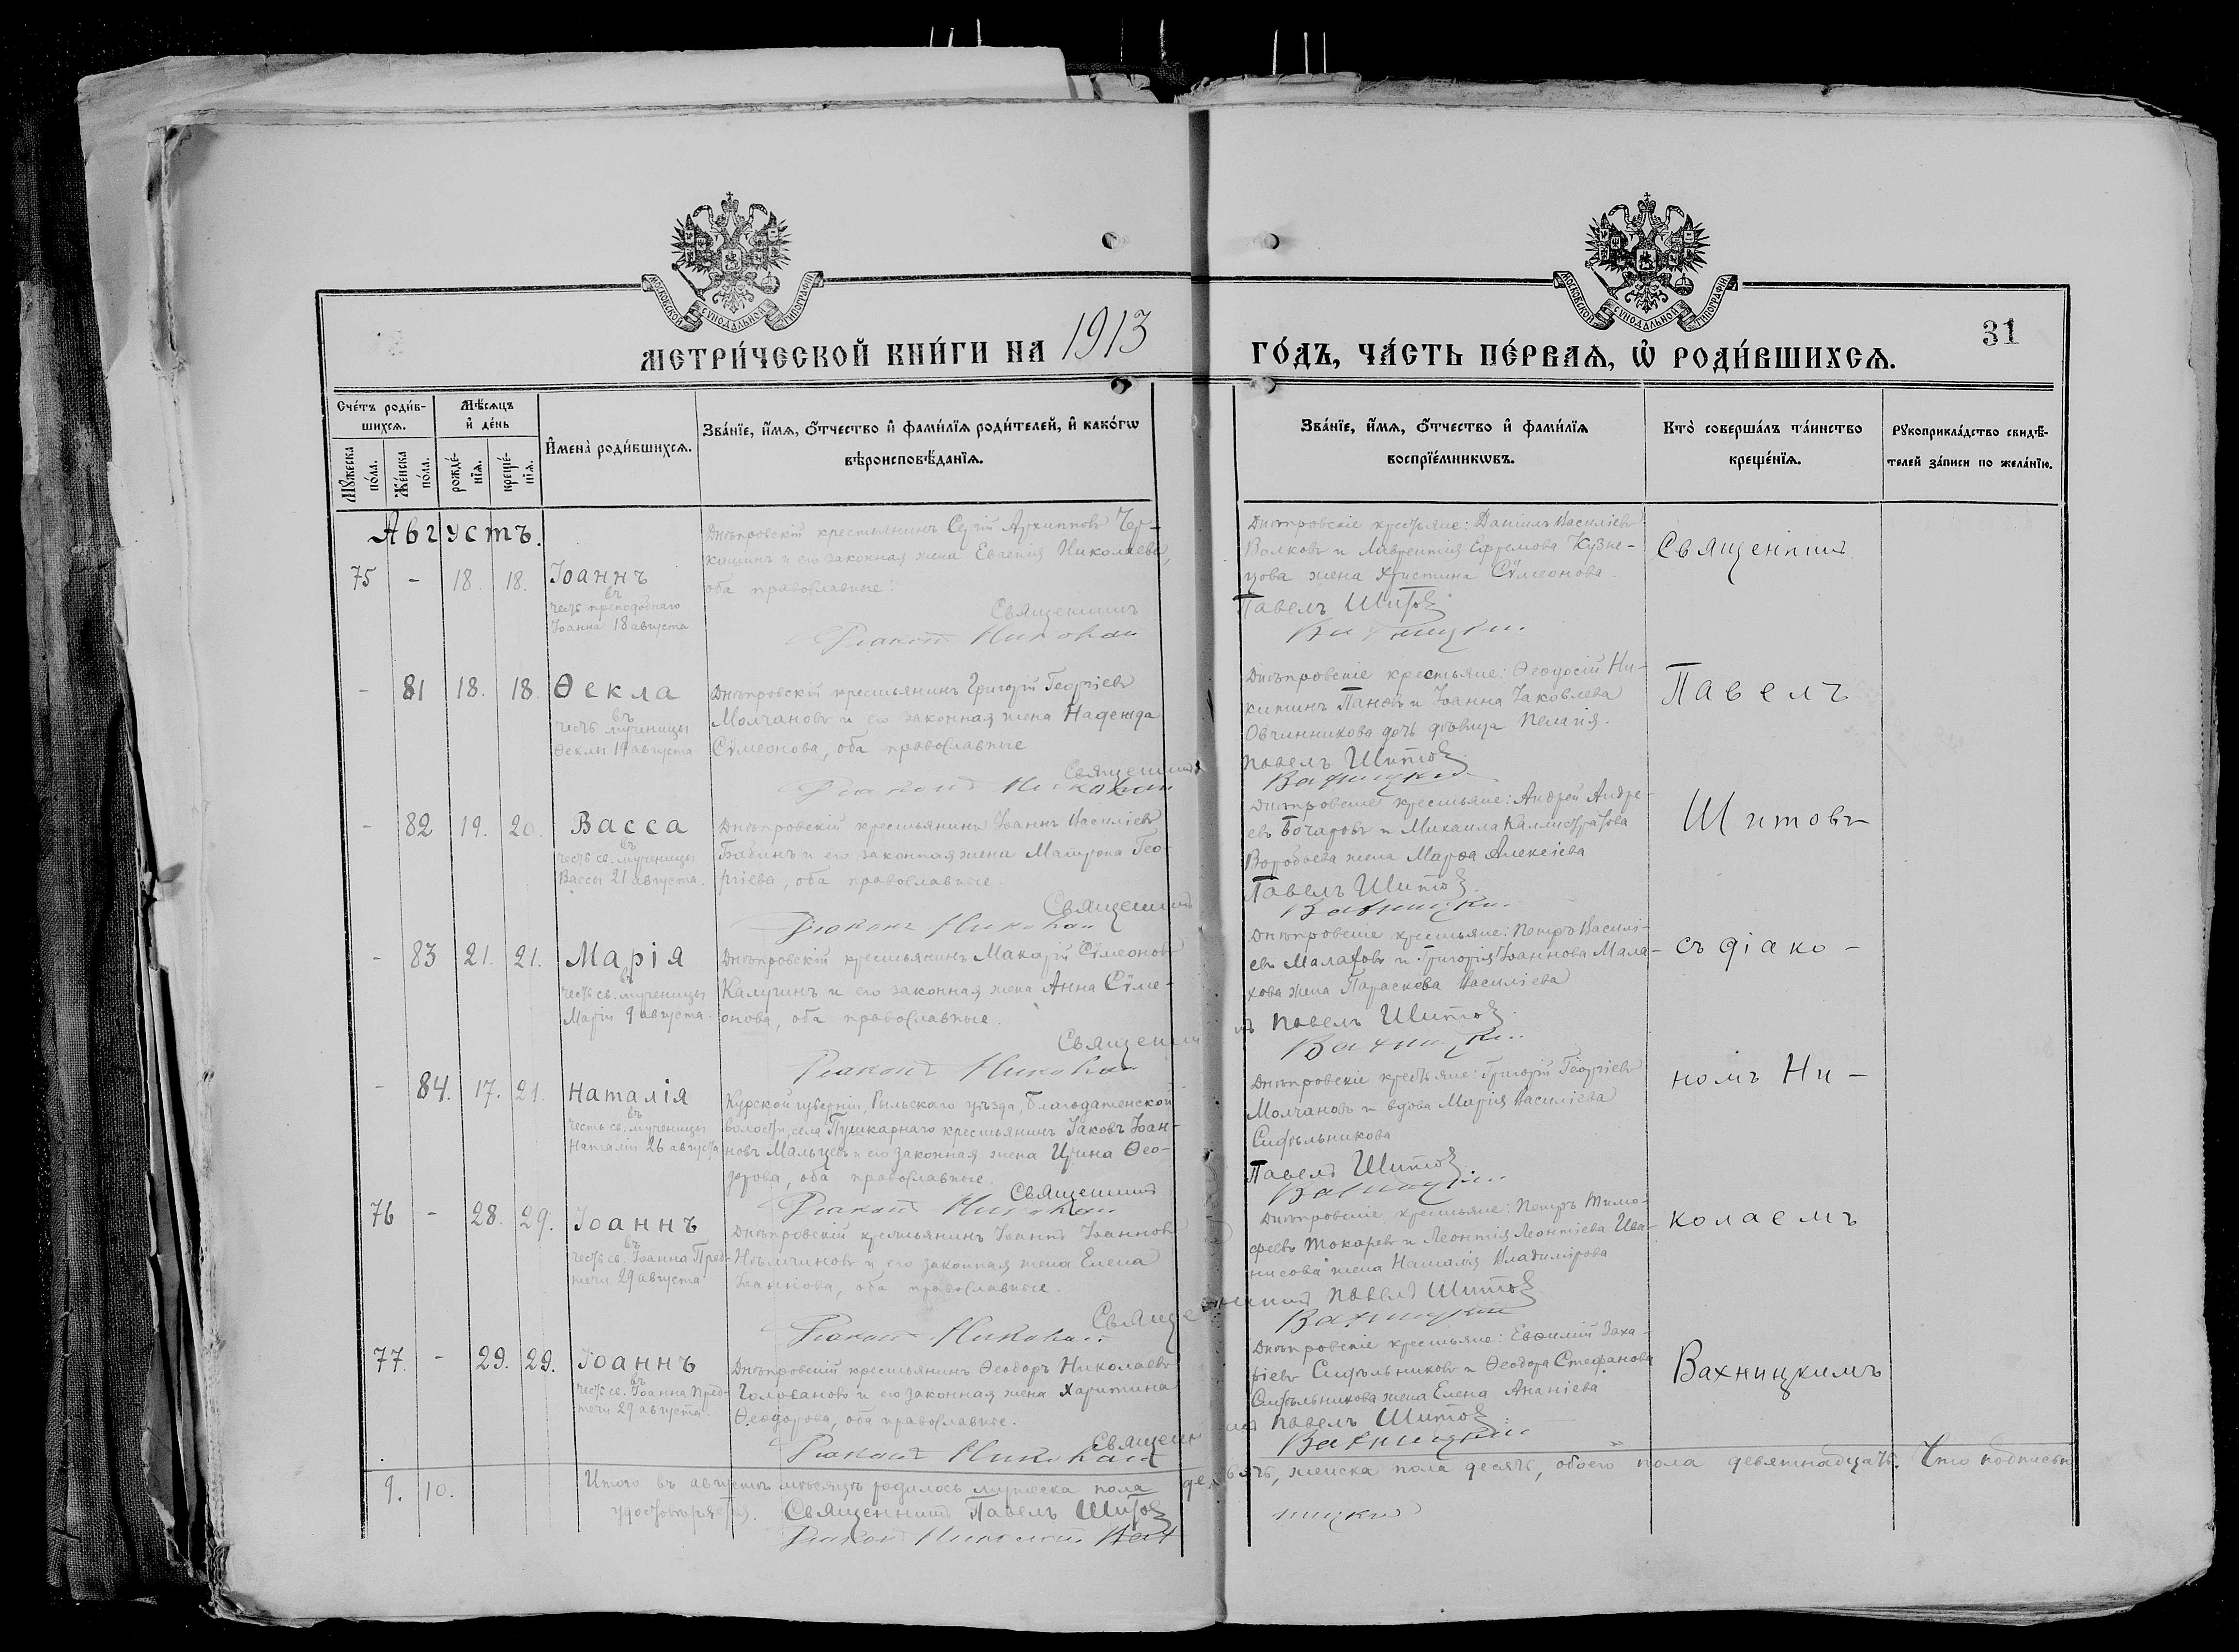 МОСКОВСКОЙ СѴНОДАЛЬНОЙ ТИПОГРАФІИ
МОСКОВСКОЙ СѴНОДАЛЬНОЙ ТИПОГРАФІИ
31
МЕТРИ́ЧЕСКОЙ КНИ́ГИ НА 1913 ГО́ДЪ, ЧА́СТЬ ПЕ́РВАѦ, Ѡ҆ РОДИ́ВШИХСѦ.
Сче́тъ роди́в-
шихсѧ.
Мꙋ́жеска по́ла.
Же́нска по́ла.
Мѣ́сѧцъ
и҆ де́нь
рожде́-
нїѧ.
креще́-
нїѧ.
И҆мена̀ роди́вшихсѧ.
Зва́нїе, и҆́мѧ, ѻ҆́тчество и҆ фами́лїѧ роди́телей, и҆ како́гѡ
вѣроисповѣ́данїѧ.
Зва́нїе, и҆́мѧ, ѻ҆́тчество и҆ фами́лїѧ
воспрїе́мникѡвъ.
Кто̀ соверша́лъ та́инство
креще́нїѧ.
Рꙋкоприкла́дство свидѣ́-
телей за́писи по жела́нїю.
Августъ.
75 - 18. 18. Іоаннъ
въ
честь преподобнаго
Іоанна 18 августа
Днѣпровскій крестьянинъ Сергій Архиповъ Чер-
кашинъ и его законная жена Евгенія Николаева,
оба православные.
Священникъ
Діаконъ Николай
Днѣпровскіе крестьяне: Даніилъ Василіевъ
Волковъ и Лаврентія Ефремова Кузне-
цова жена Христина Сѵмеонова.
Павелъ Шитовъ
Вахницкій
Священникъ
- 81 18. 18. Ѳекла
въ
честь мученицы
Ѳеклы 19 августа
Днѣпровскій крестьянинъ Григорій Георгіевъ
Молчановъ и его законная жена Надежда
Сѵмеонова, оба православные
Священникъ
Діаконъ Николай
Днѣпровскіе крестьяне: Ѳеодосій Ни-
китинъ Пановъ и Іоанна Іаковлева
Овчинникова дочь дѣвица Пелагія.
Павелъ Шитовъ
Вахницкій
Павелъ
- 82 19. 20. Васса
въ
честь св. мученицы
Вассы 21 августа.
Днѣпровскій крестьянинъ Іоаннъ Василіевъ
Бабинъ и его законная жена Матрона Гео-
ргіева, оба православные.
Священникъ
Діаконъ Николай
Днѣпровскіе крестьяне: Андрей Андре-
евъ Бочаровъ и Михаила Каллистратова
Воробьева жена Марѳа Алексіева
Павелъ Шитовъ
Вахницкій
Шитовъ
- 83 21. 21. Марія
въ
честь св. мученицы
Маріи 9 августа.
Днѣпровскій крестьянинъ Макарій Сѵмеоновъ
Калугинъ и его законная жена Анна Сѵме-
онова, оба православные.
Священникъ
Діаконъ Николай
Днѣпровскіе крестьяне: Петръ Василі-
евъ Малаховъ и Григорія Іоаннова Мала-
хова жена Параскева Василіева
Павелъ Шитовъ
Вахницкій
съ діако-
- 84. 17. 21. Наталія
въ
честь св. мученицы
Наталіи 26 августа
Курской губерніи, Рыльскаго уѣзда, Благодатенской
волости, села Пушкарнаго крестьянинъ Іаковъ Іоан-
новъ Мальцевъ и его законная жена Ирина Ѳео-
дорова, оба православные.
Священникъ
Діаконъ Николай
Днѣпровскіе крестьяне: Григорій Георгіевъ
Молчановъ и вдова Марія Василіева
Ситъльникова
Павелъ Шитовъ.
Вахницкій
номъ Ни-
76 - 28. 29. Іоаннъ
въ
честь св. Іоанна Пред-
течи 29 августа
Днѣпровскій крестьянинъ Іоаннъ Іоанновъ
и его законная жена Елена
Іоаннова, оба православные.
Священникъ Павелъ Шитовъ
Діаконъ Николай Вахницкій
Днѣпровскіе крестьяне: Петръ Тимо-
феевъ Токаревъ и Леонтія Леонтіева
жена Наталія Владимірова
колаемъ
77. - 29. 29. Іоаннъ
въ
честь св. Іоанна Пред-
течи 29 августа.
Днѣпровскій крестьянинъ Ѳеодоръ Николаевъ
Головановъ и его законная жена Харитина
Ѳеодорова, оба православные.
Священникъ Павелъ Шитовъ
Діаконъ Николай Вахницкій
Днѣпровскіе крестьяне: Евѳимій Заха-
ріевъ и Ѳеодора Стефанова
жена Елена Ананіева
Вахницкимъ
9. 10. Итого въ августѣ мѣсяцѣ родилось мужеска пола девять, женска пола десять, обоего пола девятнадцать. Что подписью
удостовѣряется. Священникъ Павелъ Шитовъ
Діаконъ Николай Вахницкій